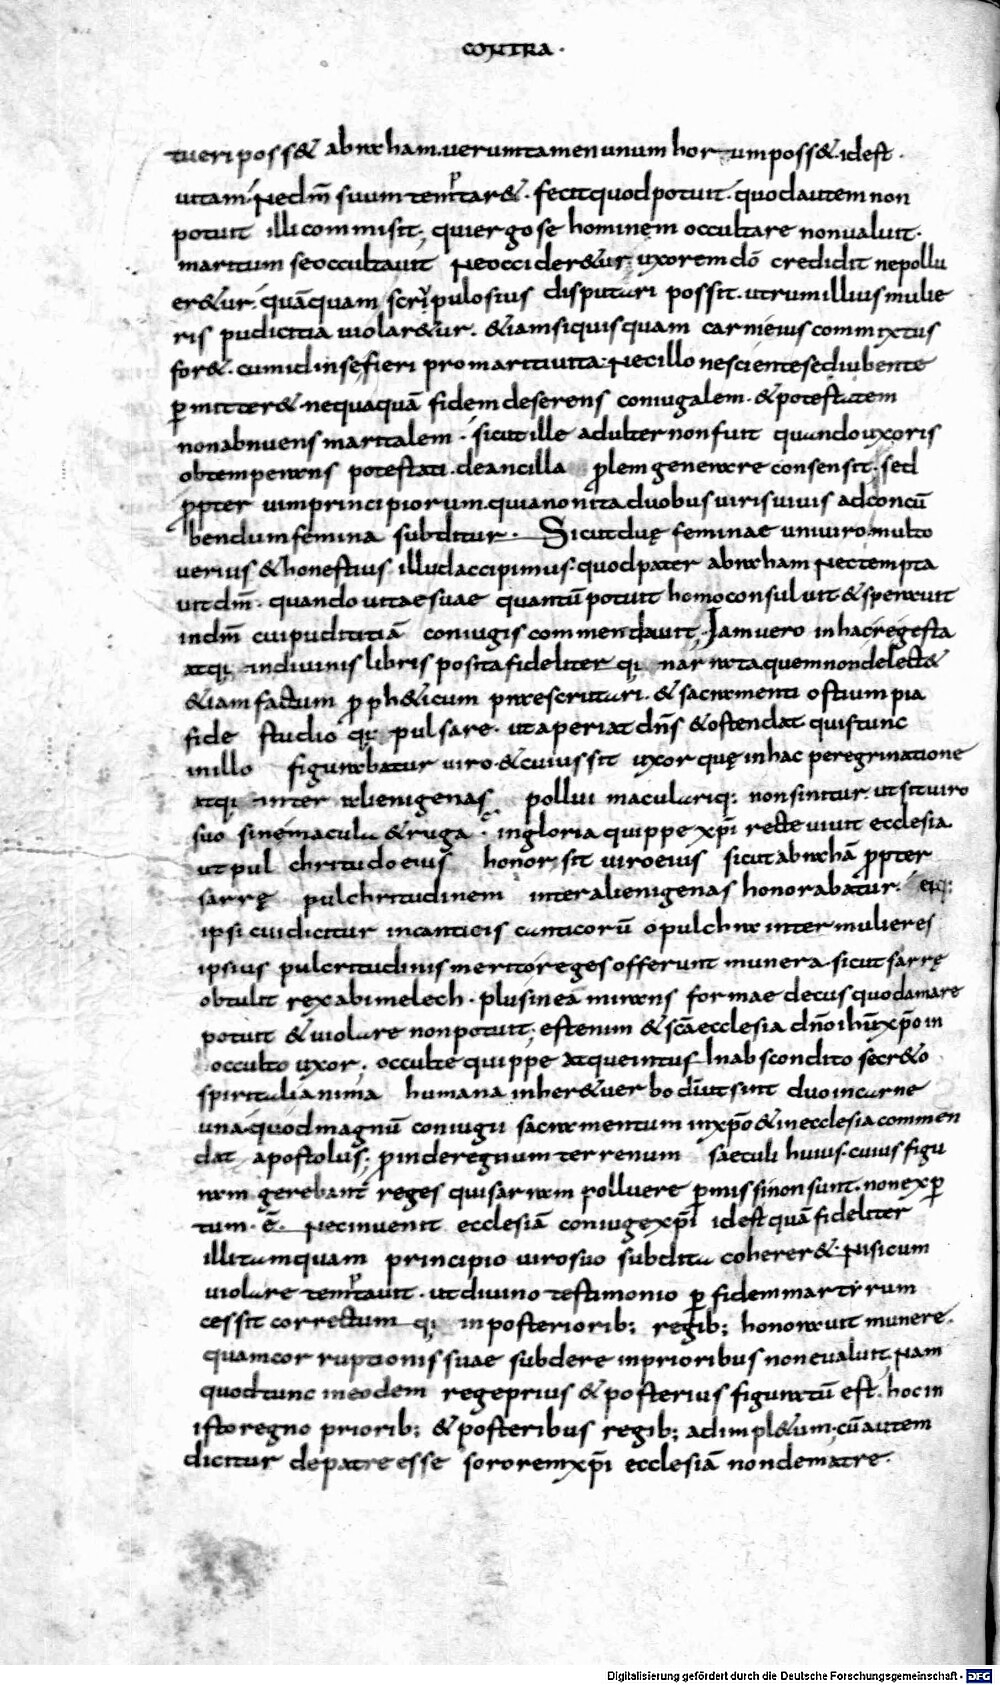 CONTRA·
tueri poss& abraham. uerumtamen unum horum poss&. idest·
uitam. Ne dm̄ suum temptar&. fecit quod potuit. quod autem non
potuit illi commisit; qui ergo se hominem occultare non ualuit.
maritum se occultauit Ne occider&ur. uxorem dō credidit ne pollu
er&ur. quāquam scripulosius disputari possit. utrum illius mulie
ris pudicitia uiolar&ur. &iam si quisquam carni eius commixtus
for&. cum id in se fieri pro mariti uita. Nec illo nesciente sed iubente
ꝑmitter&. nequaquā fidem deserens coniugalem. & potestatem
non abnuens maritalem. sicut ille adulter non fuit quando uxoris
obtemperans potestati. de ancilla prolem generare consensit. sed
propter uim principiorum. quia non ita duobus uiris uiuis ad concū
bendum femina subditur. Sicut duę feminae uni uiro. multo
uerius & honestius illud accipimus. quod pater abraham Nec tempta
uit dm̄. quando uitae suae quantū potuit homo consuluit & sperauit
in dm̄ cui pudititiā coniugis commendauit; Iam uero in hac re gesta
atq; in diuinis libris posita fideliter q; narrata quem non delect&
&iam factum proph&icum prescrutari. & sacramenti ostium pia
fide studio q; pulsare. ut aperiat dn̄s & ostendat quis tunc
in illo figurabatur uiro. & cuius sit uxor quę in hac peregrinatione
atq; inter alienigenas pollui maculariq; non sinitur. ut sit uiro
suo sine macula & ruga. in gloria quippe xp̄i recte uiuit ecclesia
ut pulchritudo eius honor sit uiro eius sicut abrahā propter
sarrę pulchritudinem inter alienigenas honorabatur. eiq;
ipsi cui dicitur in canticis canticorū o pulchra inter mulieres
ipsius pulcritudinis merito reges offerunt munera. sicut sarrę
obtulit rex abimelech. plus in ea mirans formae decus quod amare
potuit & uiolare non potuit; est enim & sc̄a ecclesia dn̄o ihū xp̄o in
occulto uxor. occulte quippe atque intus In abscondito secr&o
spiritali anima humana inher& uerbo dī. ut sint duo in carne
una. quod magnū coniugii sacramentum in xp̄o & in ecclesia commen
dat apostolus. proinde regnum terrenum saeculi huius. cuius figu
ram gerebant reges qui sarram polluere ꝑmissi non sunt. non exꝑ
tum. ē. Nec inuenit ecclesiā coniuge xp̄i id est quā fideliter
illi tamquam principio uiro suo subdita coherer&. Nisi cum
uiolare temptauit. ut diuino testimonio ꝑ fidem martyrum
cessit correctum q; in posteriorib; regib; honorauit munere.
quam corruptionis suae subdere in prioribus non eualuit. Nam
quod tunc in eodem rege prius & posterius figuratū est. hoc in
isto regno priorib; & posteribus regib; adimpl&um. cū autem
dicitur de patre esse sororem xp̄i ecclesiā non de matre.
Digitalisierung gefördert durch die Deutsche Forschungsgemeinschaft - DFG